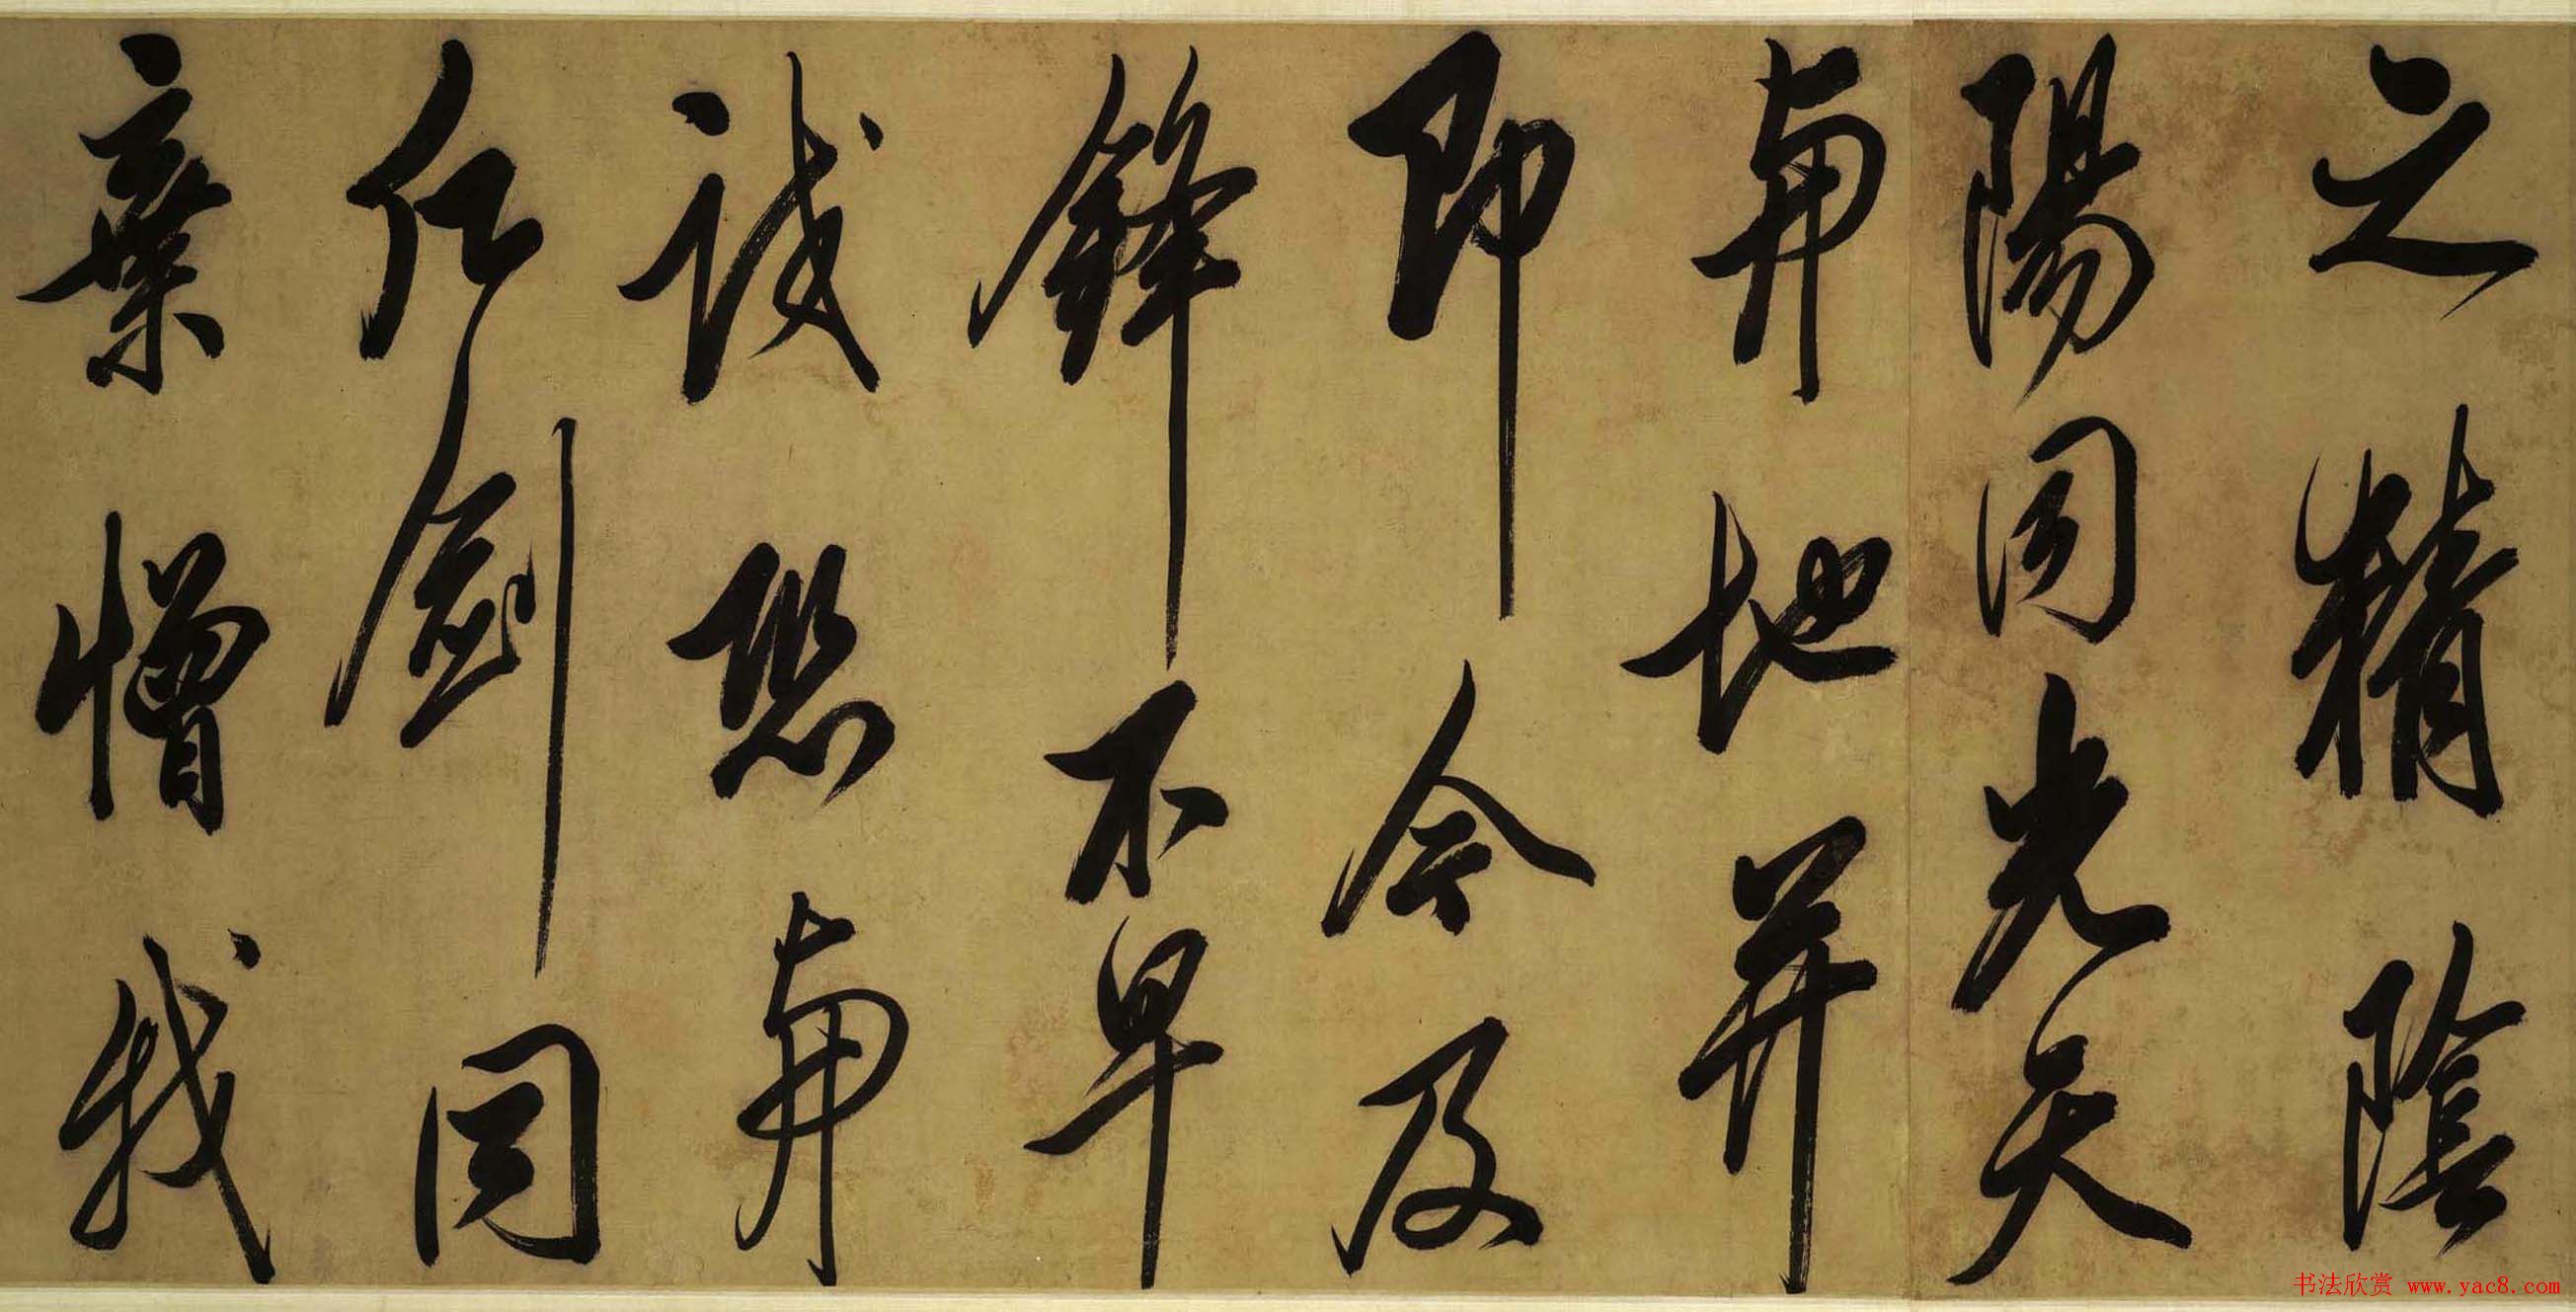 之精陰
陽同光天
與地并
即今及
鋒不早
試恐與
劍同
棄憎我
书法欣赏 www.yac8.com